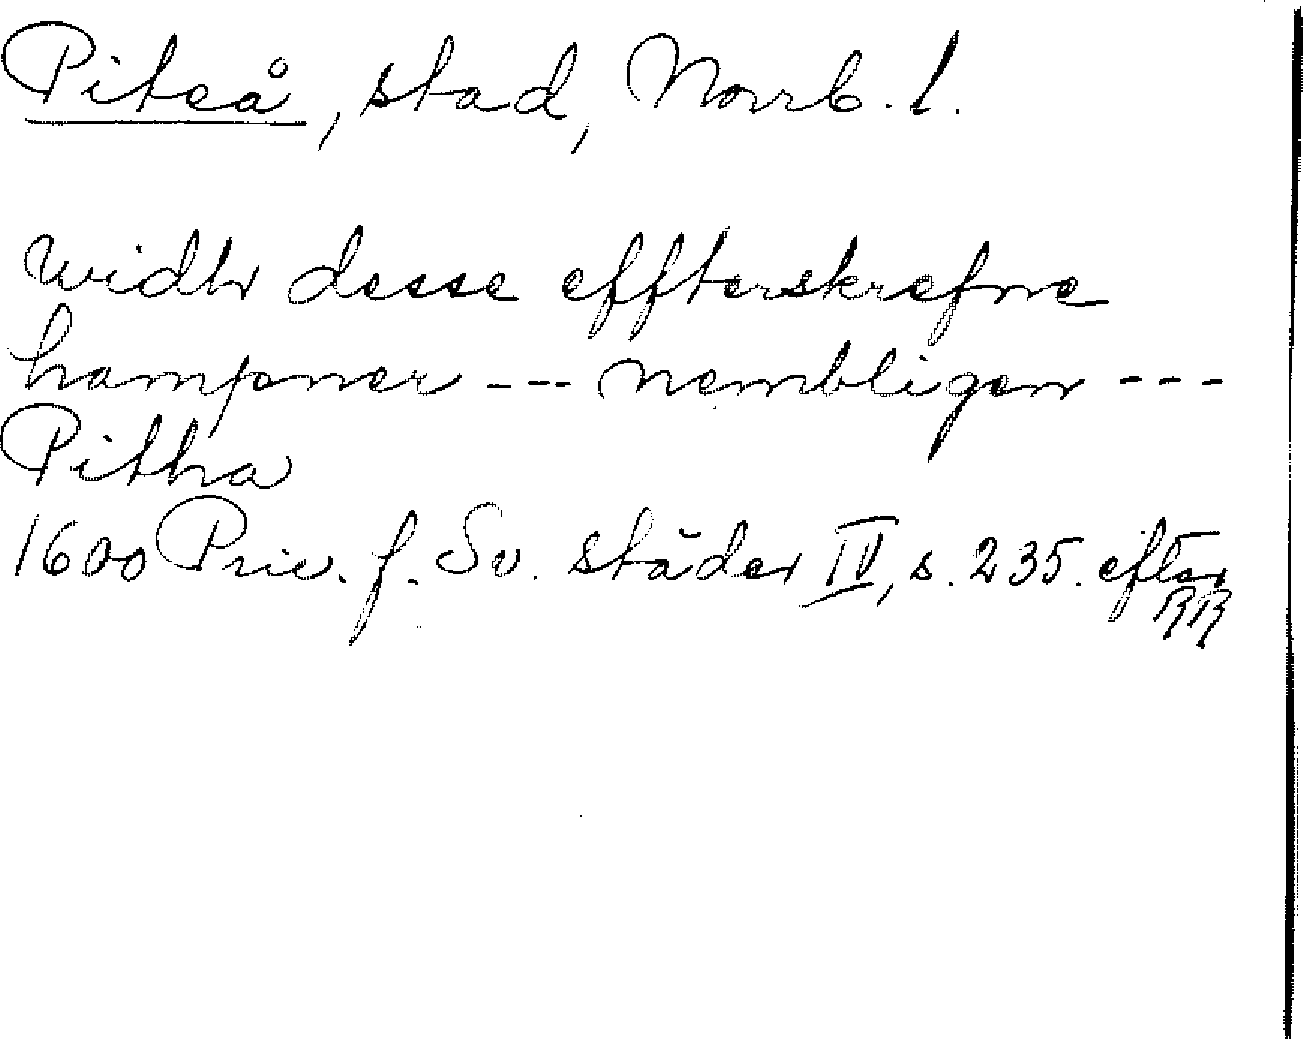 Piteå, stad, Norrb. l.
widh desse effterskrefne
hampner --- nembligen ---
Pitha
1600 Priv. f. Sv. städer IV, s. 235. efter
RR